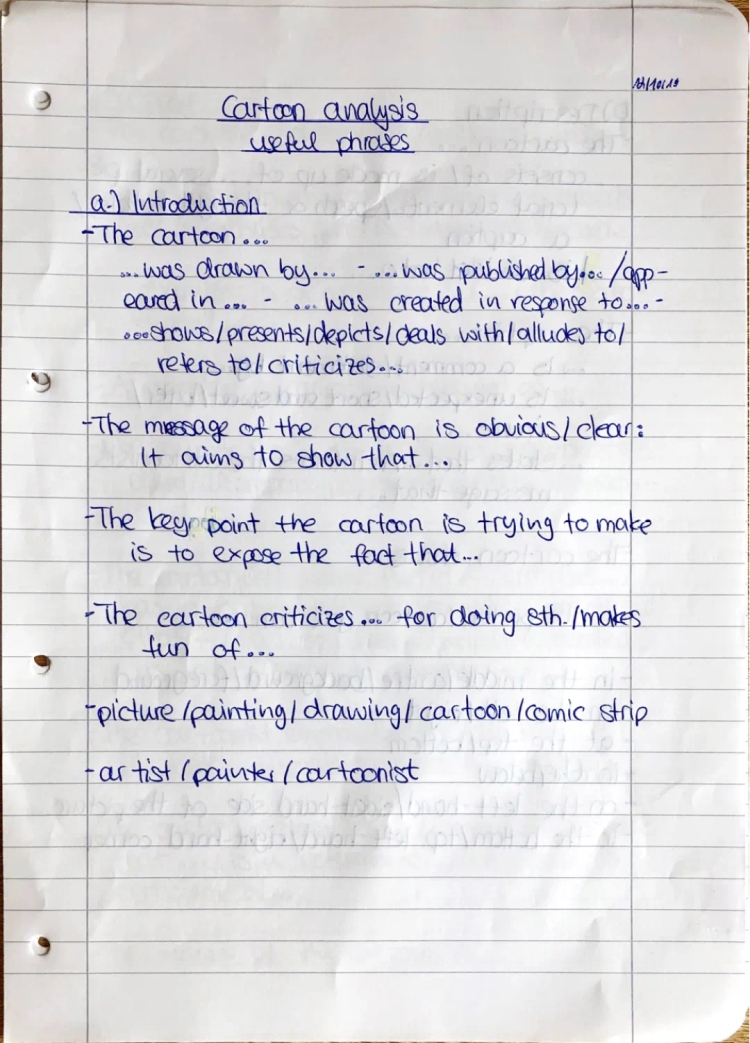 Cartoon analysis
useful phrases
a.) Introduction
-The cartoon...
...was drawn by... - ...was published by... /app-
eared in... - ...was created in response to... -
...shows/presents/depicts/deals with/alludes to/
refers to/criticizes...
-The message of the cartoon is obvious/clear:
It aims to show that...
-The key point the cartoon is trying to make
is to expose the fact that...
-The cartoon criticizes... for doing sth./makes
fun of...
-picture/painting/drawing/cartoon/comic strip
-artist/painter/cartoonist